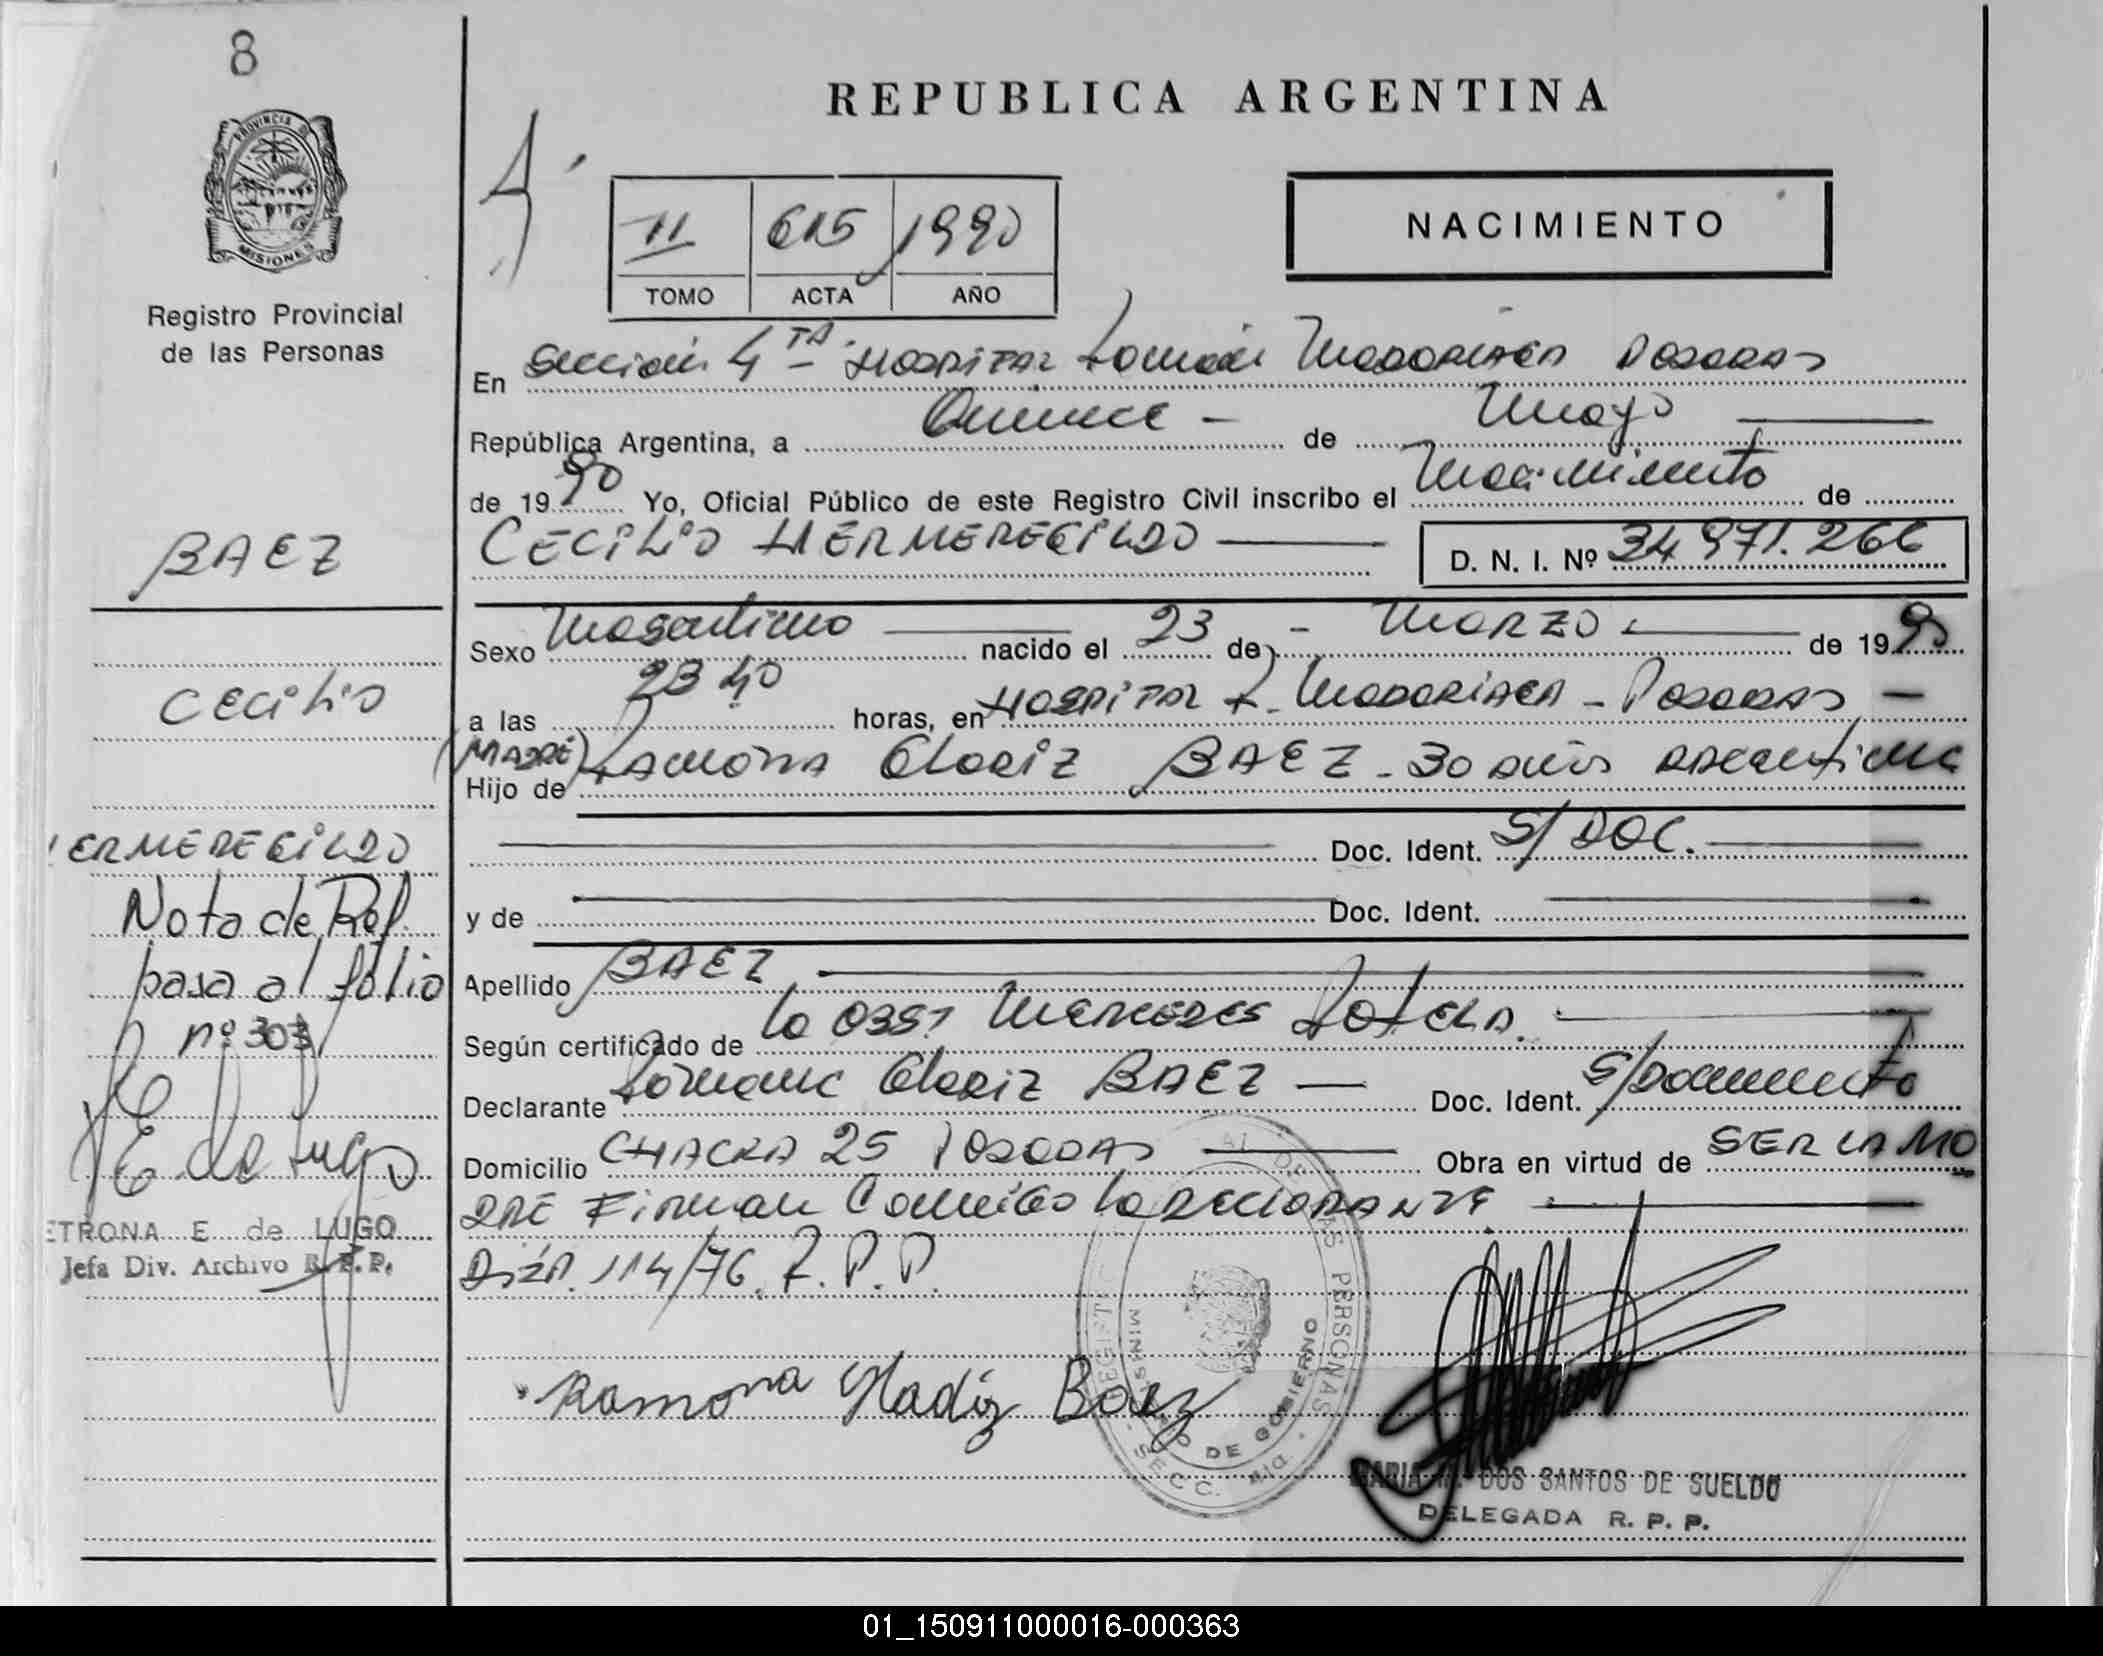 8
PROVINCIA DE
MISIONES
Registro Provincial
de las Personas
BAEZ
CECILIO
HERMEREGILDO
Nota de Ref.
pasa al folio
nº 303
E de Lugo
ETRONA E de LUGO
Jefa Div. Archivo R. P. P.
REPUBLICA ARGENTINA
II 615 1990
TOMO ACTA AÑO
NACIMIENTO
En Sección 4TA. Hospital Ramón Madariaga Posadas
República Argentina, a Quince - de Mayo
de 1990 Yo, Oficial Público de este Registro Civil inscribo el Nacimiento de
CECILIO HERMEREGILDO D. N. I. Nº 34 971.266
Sexo Masculino nacido el 23 de - Marzo de 1990
a las 23 40 horas, en Hospital R. Madariaga - Posadas
(MADRE) Hijo de Ramona Gladiz BAEZ - 30 años argentina
Doc. Ident. S/DOC.
y de Doc. Ident.
Apellido BAEZ
Según certificado de la Obst Mercedes Sotela.
Declarante Ramona Gladiz BAEZ Doc. Ident. S/Documento
Domicilio CHACRA 25 Posadas Obra en virtud de SER LA MA
DRE Firman Conmigo la declarante.
Disp. 114/76. R. P. P.
Ramona Gladiz Baez
DE LAS PERSONAS
MINISTERIO DE GOBIERNO
SECC. 4ta.
MARIA DOS SANTOS DE SUELDO
DELEGADA R. P. P.
01_150911000016-000363